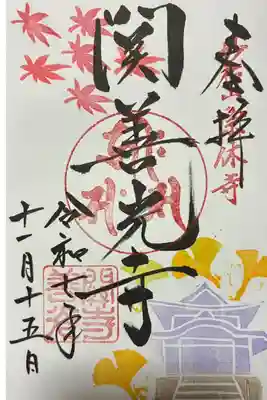 奉拝
休寺
関善光寺
令和七年
十一月十五日